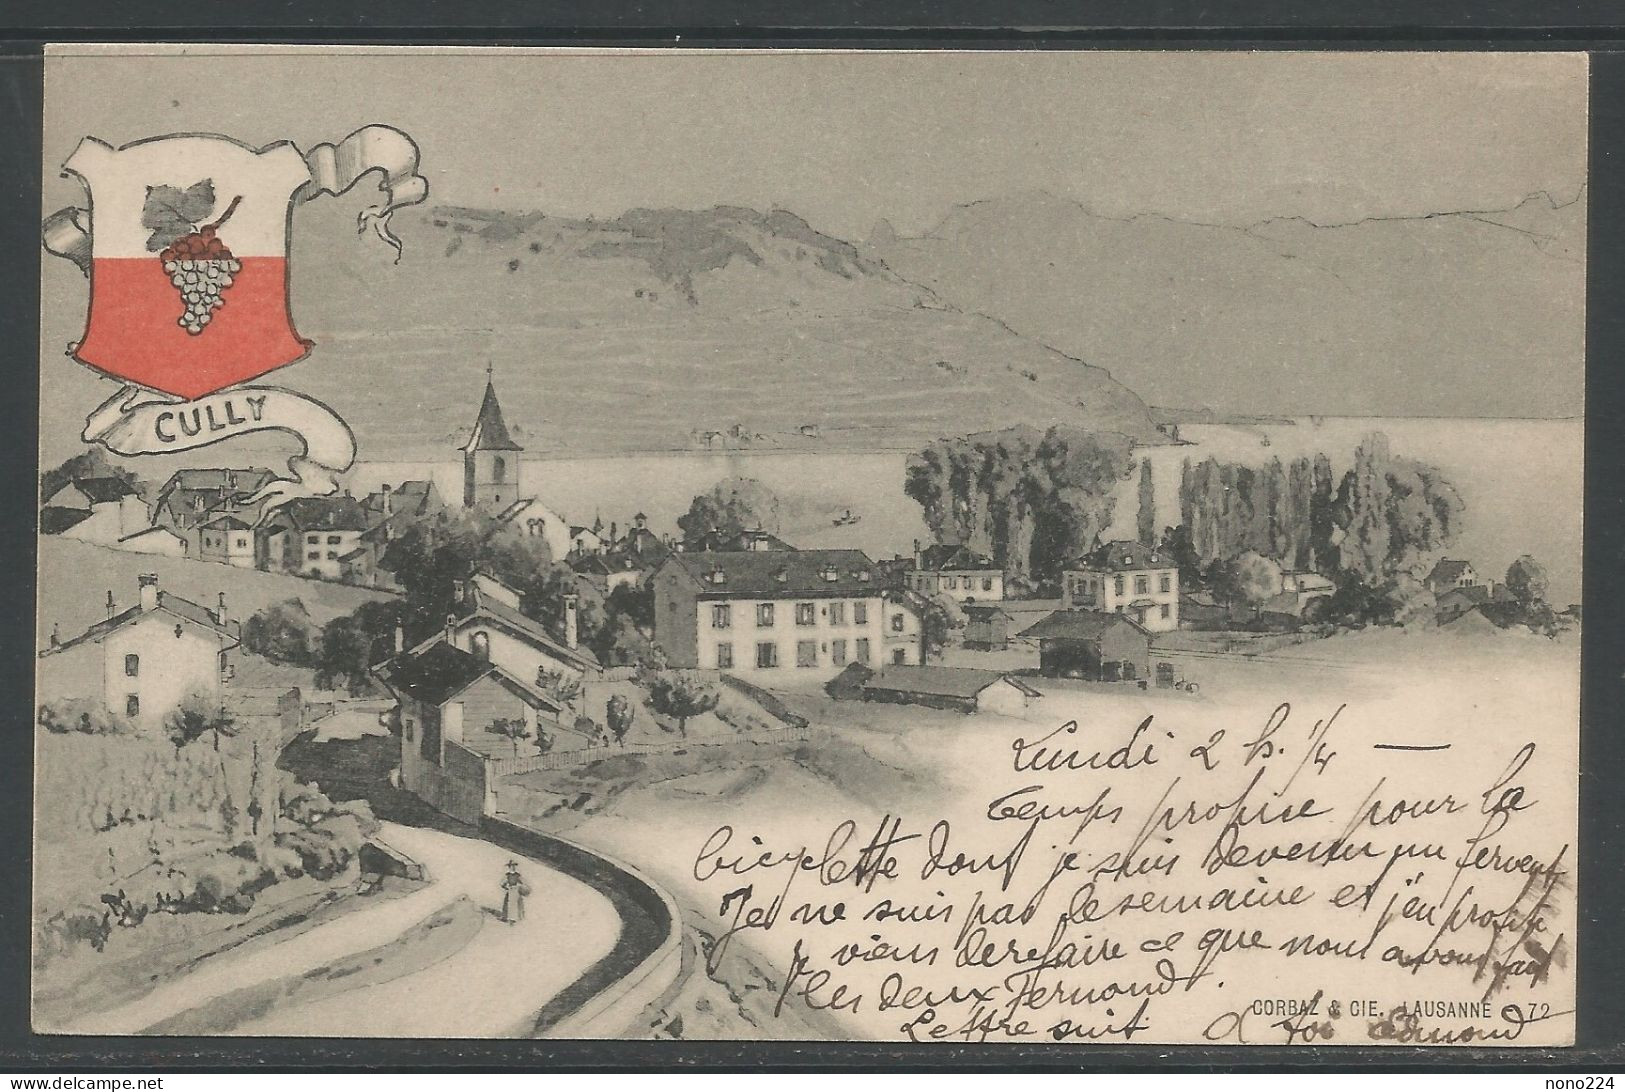 CULLY
Lundi 2 h. 1/4 —
Temps propice pour la
bicyclette dont je suis devenu un fervent
Je ne suis pas de semaine et j'en profite
viens de refaire ce que nous avons fait
les deux Fernand.
CORBAZ & CIE. LAUSANNE 72
Lettre suit à toi Edmond
nono224